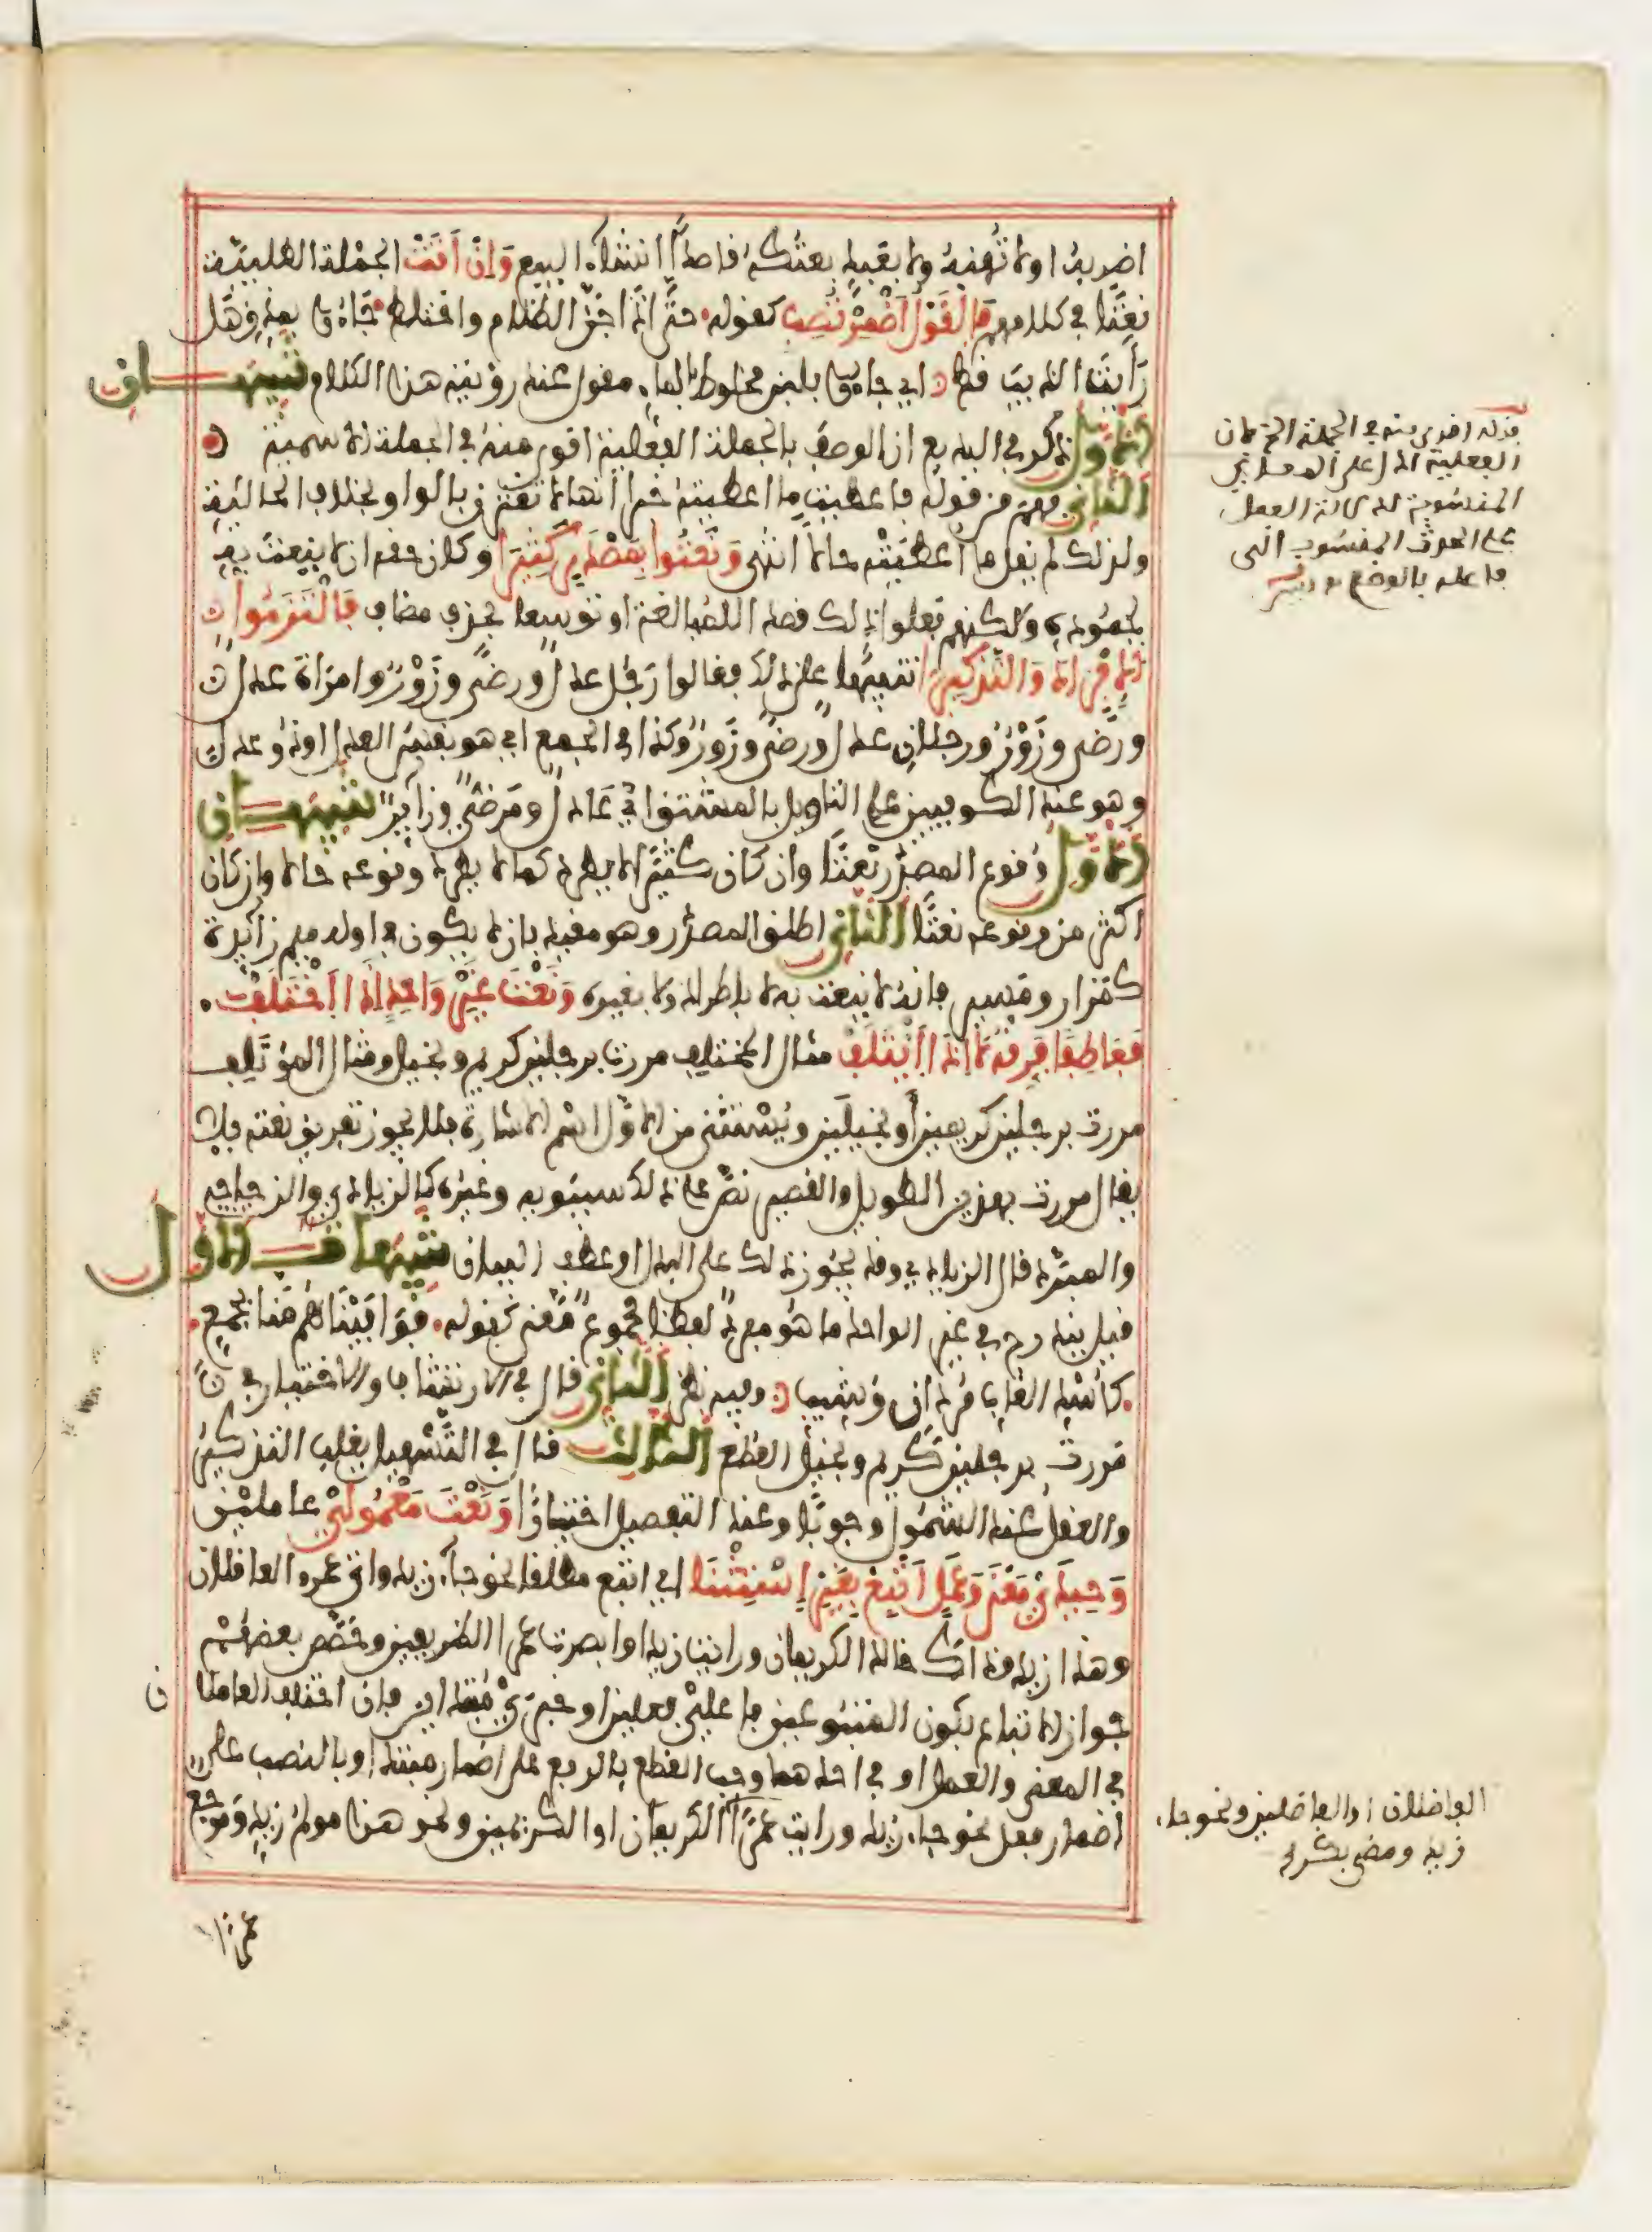 اضربه او لا تُهِنه ولا بعبد بعتكه قاصدا انشاء البيع وَإِنْ أَتَتْ الجملة الطلبية
نعتا في كلامهم فَالْقَوْلَ أَضْمِرْ تُصِبِ كقوله حتى إذا جن الظلام واختلط جاءوا بمذق هل
رأيت الذيب قط اي جاءوا بلبن مخلوط بالماء مقول عند رؤيته هذا الكلام تنبيهان
الأول ذكر في البديع ان الوصف بالجملة الفعلية اقوى منه في الجملة الاسمية
الثاني فهم من قوله فاعطيت ما اعطيته خبرا انها لا تقترن بالواو بخلاف الحالية
ولذلك لم يقل ما اعطيته حالا انتهى وَنَعَتُوا بِمَصْدَرٍ كَثِيرَا وكان حقه ان لا ينعت به
لجموده ولكنهم فعلوا ذلك قصدا للمبالغة او توسعا بحذف مضاف فَالْتَزَمُوا
الإِفْرَادَ وَالتَّذْكِيرَا تنبيها على ذلك فقالوا رجل عدل ورضى وزور وامراة عدل
ورضى وزور ورجلان عدل ورضى وزور وكذا في الجمع اي هو نفس العدل او ذو عدل
وهو عند الكوفيين على التاويل بالمشتق اي عادل ومرضي وزاير تنبيهان
الأول وقوع المصدر نعتا وان كان كثيرا لا يطرد كما لا يطرد وقوعه حالا وان كان
اكثر من وقوعه نعتا الثاني اطلق المصدر وهو مقيد بان لا يكون في اوله ميم زايدة
كمزار ومسير فانه لا ينعت به لا باطراد ولا بغيره وَنَعْتُ غَيْرِ وَاحِدٍ إِذَا اخْتَلَفْ
فَعَاطِفًا فَرِّقْهُ لاَ إِذَا ائْتَلَفْ مثال المختلف مررت برجلين كريم وبخيل ومثال المؤتلف
مررت برجلين كريمين أو بخيلين ويستثنى من الاول اسم الاشارة فلا يجوز تفريق نعته فلا
يقال مررت بهذين الطويل والقصير نص على ذلك سيبويه وغيره كالزيادي والزجاج
والمبرد قال الزيادي وقد يجوز ذلك على البدل او عطف البيان تنبيهات الأول
قيل يندرج في غير الواحد ما هو مفرد لفظا مجموع معنى كقوله فوافيناهم منا بجمع
كأسد الغاب مردان وشيب وفيه نظر الثاني قال في الارتشاف والاختيار في
مررت برجلين كريم وبخيل القطع الثالث قال في التسهيل يغلب التذكير
والعقل عند الشمول وجوبا وعند التفصيل اختيارا وَنَعْتَ مَعْمُولَيْ عاملين
وَحِيدَيْ مَعْنَى وَعَمَلِ أَتْبِعْ بِغَيْرِ اسْتِثْنَا اي اتبع مطلقا نحو جاء زيد واتى عمرو العاقلان
وهذا زيد وذاك خالد الكريمان ورايت زيدا وابصرت عمرا الظريفين وخصص بعضهم
جواز الاتباع بكون المتبوعين فاعلي فعلين او خبري مبتداين فان اختلف العاملان
في المعنى والعمل او في احدهما وجب القطع بالرفع على اضمار مبتدا او بالنصب على
اضمار فعل نحو جاء زيد ورايت عمرا الكريمان او الكريمين ونحو هذا مولم زيد وموجع
عمرا
قوله اقوى منه في الجملة الخ لان
الفعلية ادل على
المنسوبة لدلالة الفعل
على الحدث المنسوب الى
فاعله بالوضع
الفاضلان او الفاضلين ونحو جاء
زيد ومضى بكر